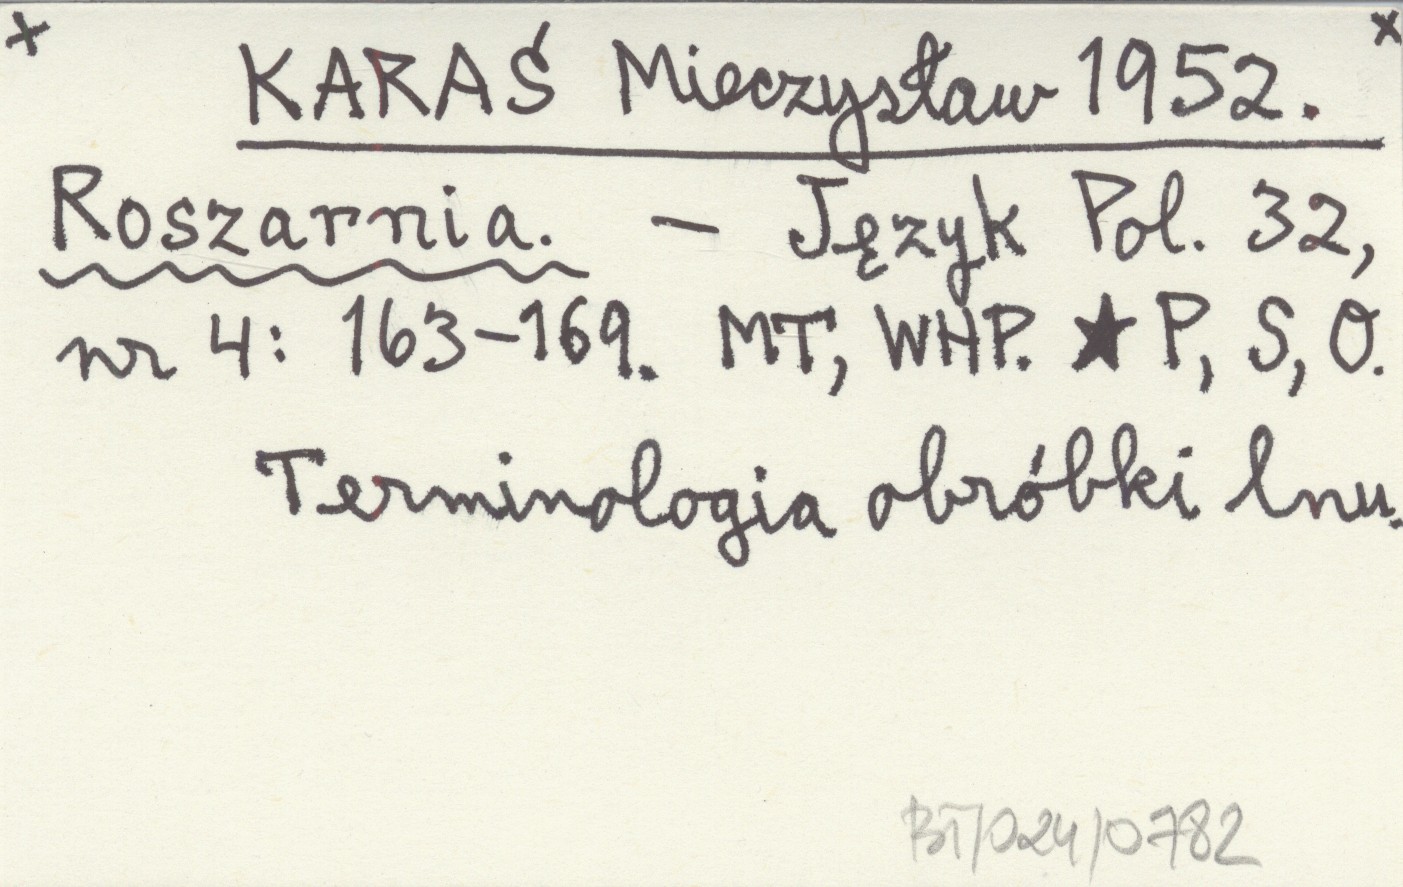 x x
KARAŚ Mieczysław 1952.
Roszarnia. – Język Pol. 32,
nr 4: 163–169. MT, WHP. ★ P, S, O.
Terminologia obróbki lnu.
BT/024/0782